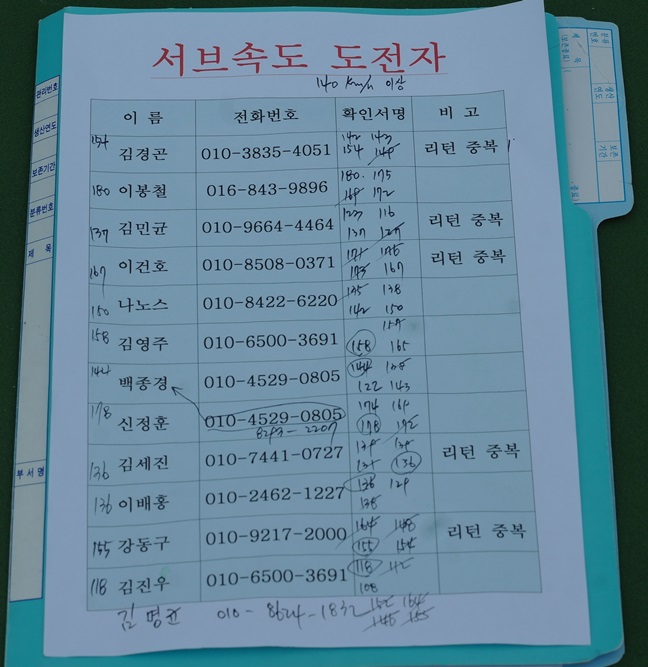 서브속도 도전자
140 km/h 이상
이 름 전화번호 확인서명 비 고
142 143
154 김경곤 010-3835-4051 154 148 리턴 중복
180 175
180 이봉철 016-843-9896 169 172
123 116
137 김민균 010-9664-4464 137 127 리턴 중복
171 175
167 이건호 010-8508-0371 173 167 리턴 중복
135 138
150 나노스 010-8422-6220 142 150
158 김영주 010-6500-3691 158 165
144 백종경 010-4529-0805 144
122 143
174 169
178 신정훈 010-4529-0805 178 172
8293-2207
136 김세진 010-7441-0727 136 리턴 중복
136 이배홍 010-2462-1227 136 129
135
164 148
155 강동구 010-9217-2000 155 154 리턴 중복
118 김진우 010-6500-3691 118 112
108
김명균 010-8624-1832 164
145 155
관리번호
생산연도
보존기간
분류번호
제 목
부서명
분류번호
생산연도
보존기간